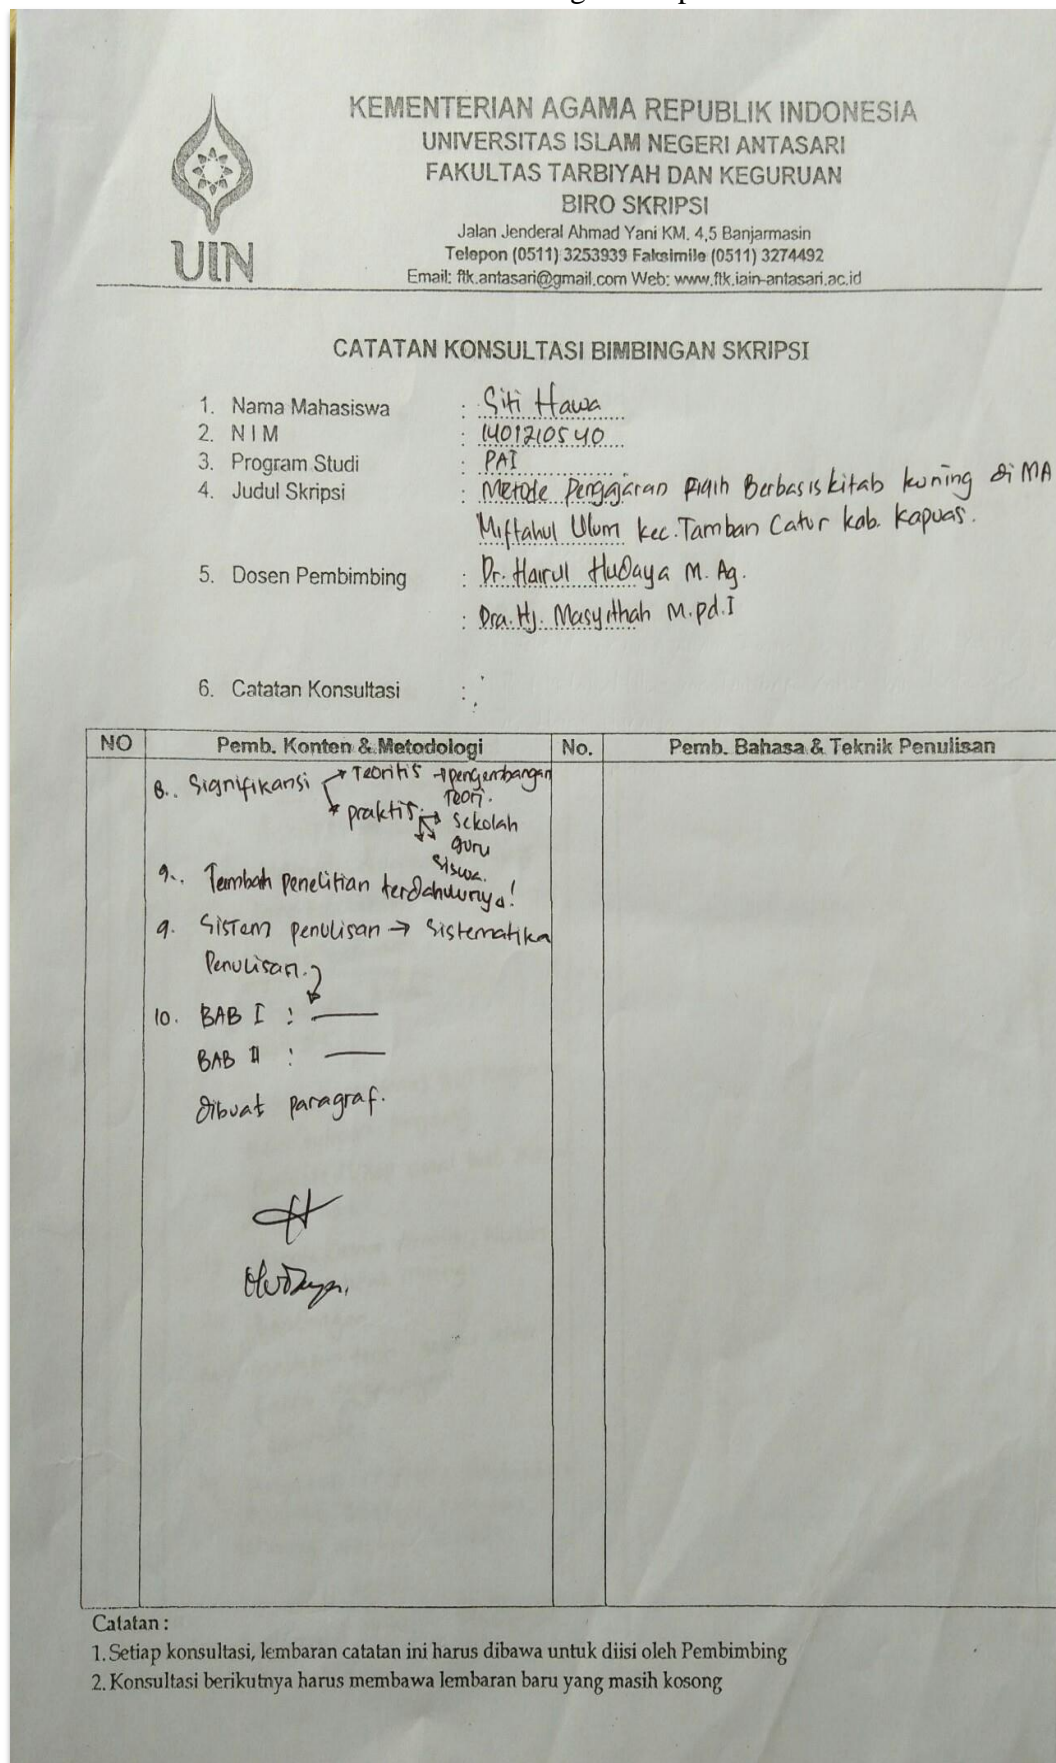 KEMENTERIAN AGAMA REPUBLIK INDONESIA
UNIVERSITAS ISLAM NEGERI ANTASARI
FAKULTAS TARBIYAH DAN KEGURUAN
BIRO SKRIPSI
Jalan Jenderal Ahmad Yani KM. 4,5 Banjarmasin
Telepon (0511) 3253939 Faksimile (0511) 3274492
Email: ftk.antasari@gmail.com Web: www.ftk.iain-antasari.ac.id
UIN
CATATAN KONSULTASI BIMBINGAN SKRIPSI
1. Nama Mahasiswa : Siti Hawa
2. N I M : 1401210540
3. Program Studi : PAI
4. Judul Skripsi : Metode Pengajaran Fiqih Berbasis kitab kuning di MA
Miftahul Ulum kec. Tamban Catur kab. Kapuas.
5. Dosen Pembimbing : Dr. Hairul Hudaya M. Ag.
: Dra. Hj. Masyithah M.pd.I
6. Catatan Konsultasi :
NO Pemb. Konten & Metodologi No. Pemb. Bahasa & Teknik Penulisan
8. Signifikansi → Teoritis → pengembangan
Teori.
→ praktis → sekolah
guru
siswa.
9. Tambah penelitian terdahulunya!
9. Sistem penulisan → Sistematika
Penulisan.
10. BAB I : ——
BAB II : ——
dibuat paragraf.
Catatan :
1. Setiap konsultasi, lembaran catatan ini harus dibawa untuk diisi oleh Pembimbing
2. Konsultasi berikutnya harus membawa lembaran baru yang masih kosong